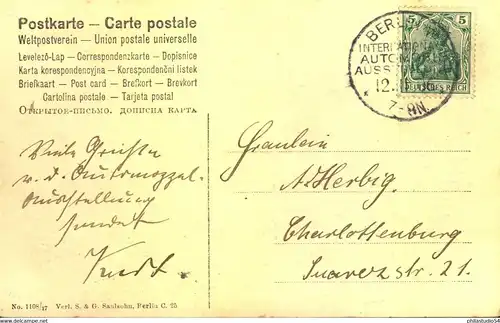 Postkarte — Carte postale
Weltpostverein — Union postale universelle
Levelező-Lap — Correspondenzkarte — Dopisnice
Karta korespondencyjna — Korespondenční lístek
Briefkaart — Post card — Brefkort — Brevkort
Cartolina postale — Tarjeta postal
Открытое-письмо. дописна карта
5 5
DEUTSCHES REICH
BERLIN
INTERNATIONALE
AUTOMOBIL
AUSSTELLUNG
* 12.
7-8N.
Viele Grüße
v. d. Automozzal-
Ausstellung
sendet
Kurt.
Fräulein
A. Herbig.
Charlottenburg
Suarezstr. 21.
No. 1168/17 Verl. S. & G. Saulsohn, Berlin C. 25
philastudio54